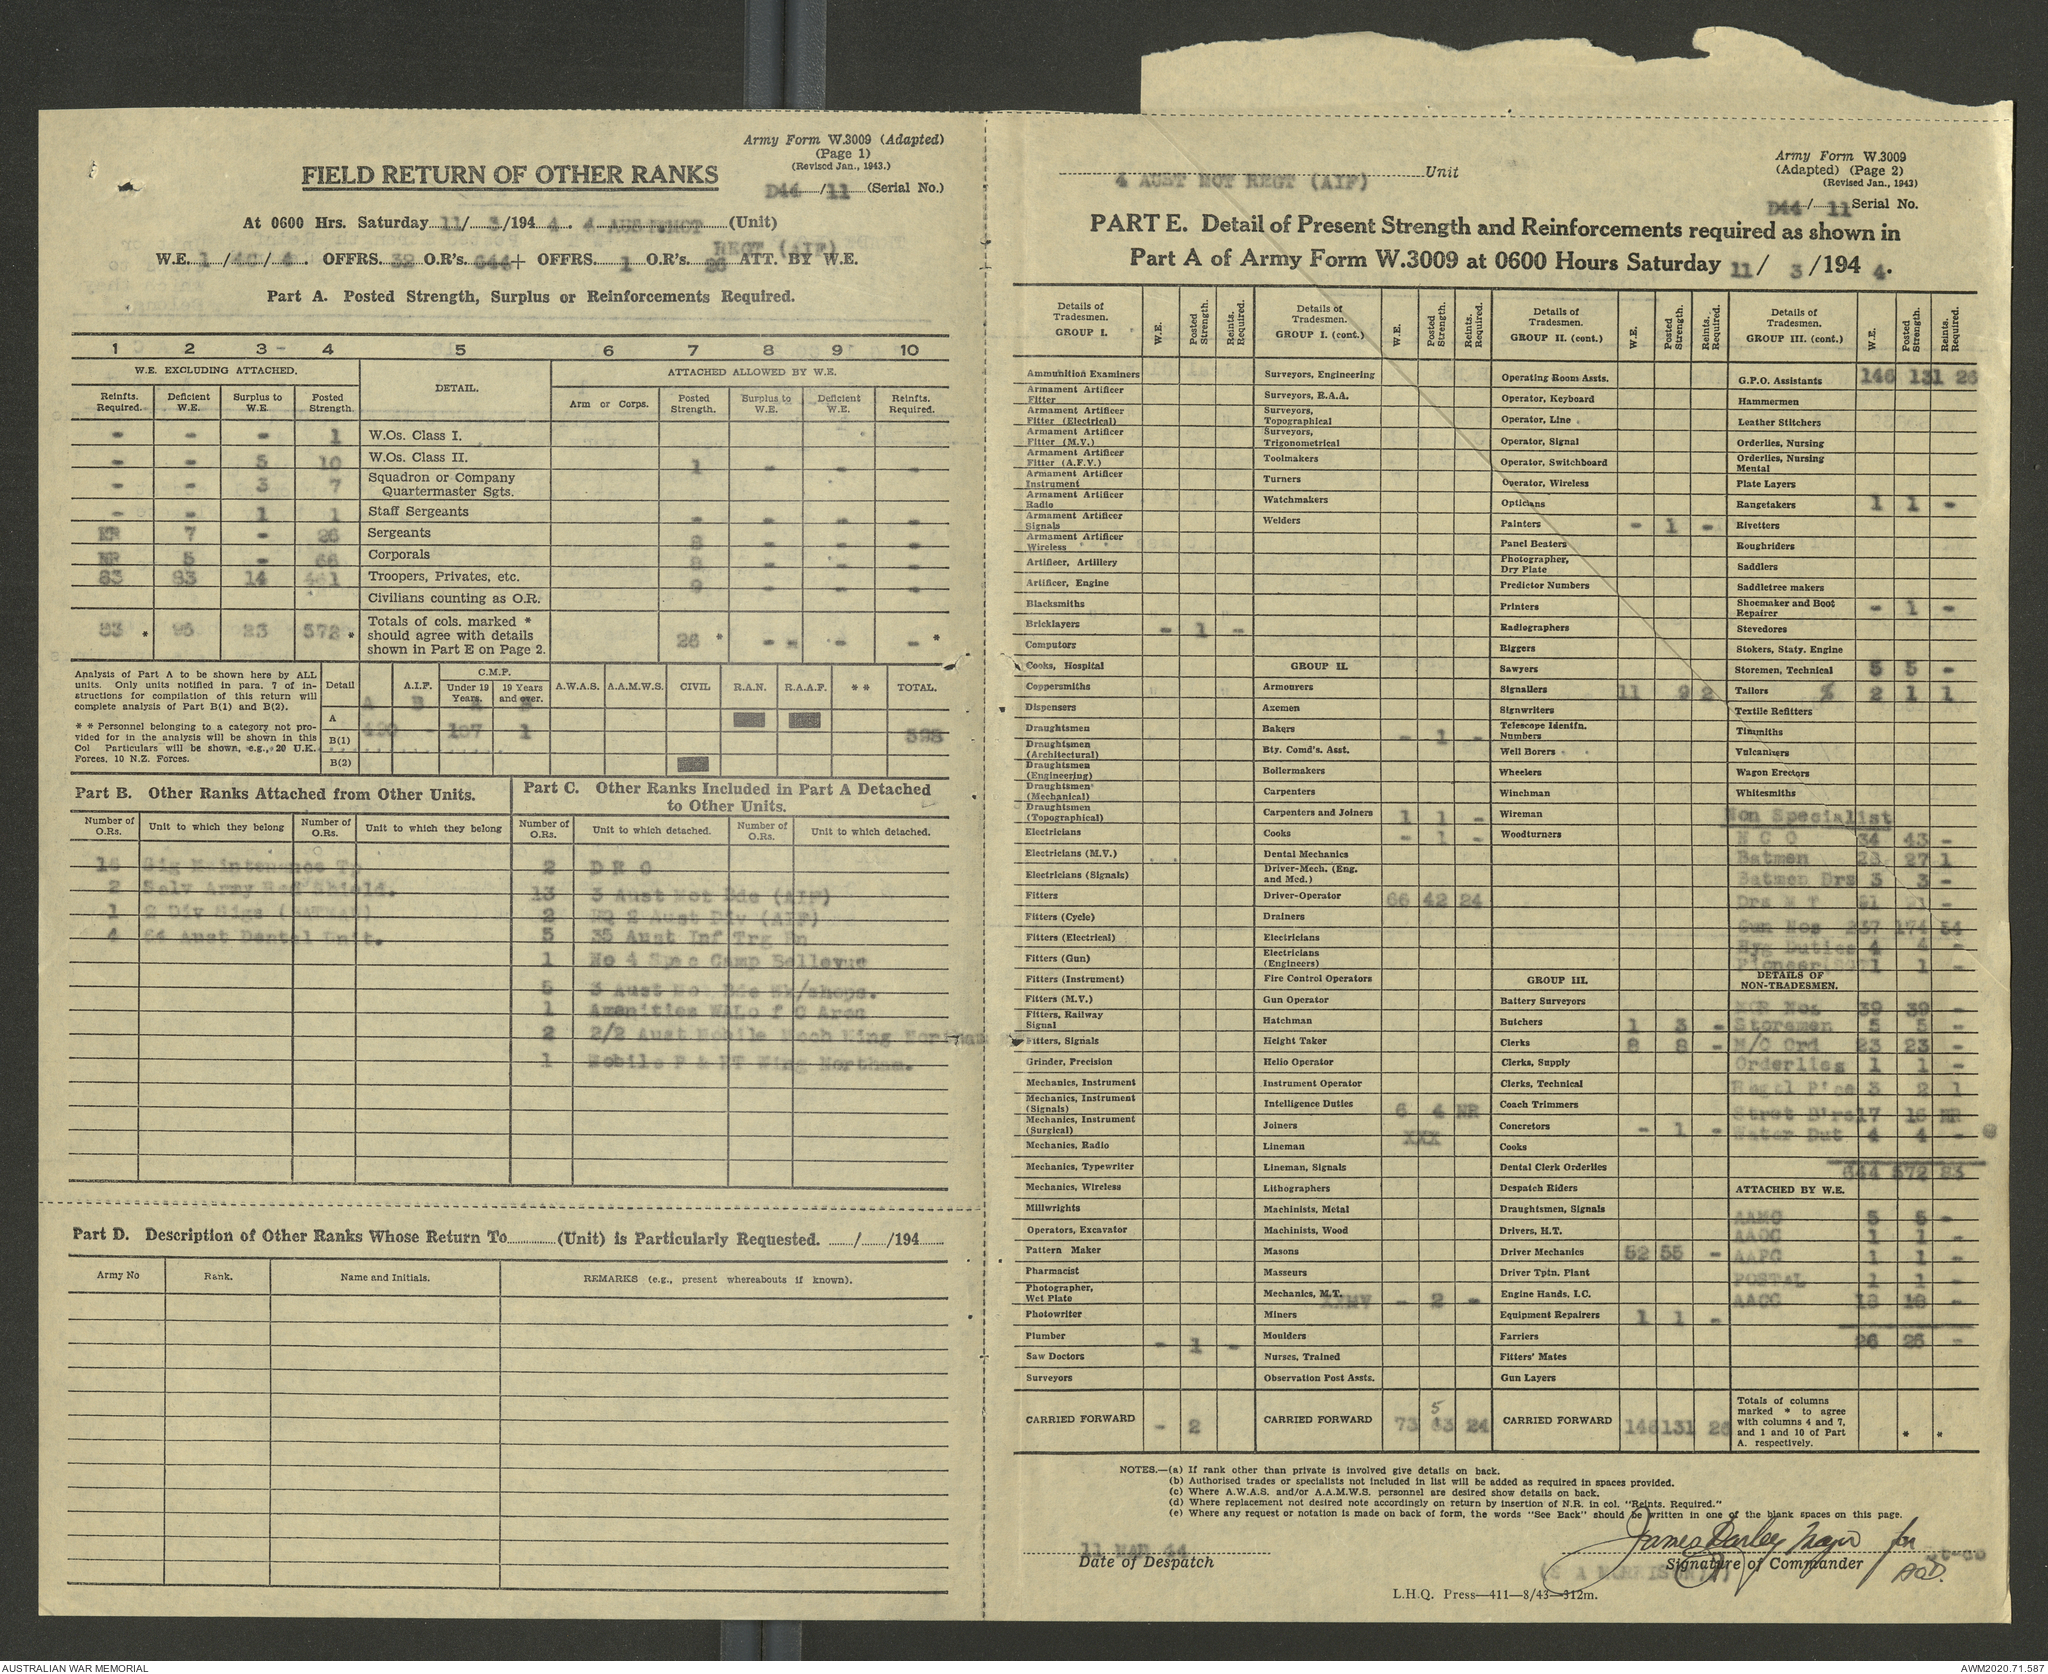 Army Form W.3009 (Adapted)
(Page 1)
(Revised Jan., 1943.)
FIELD RETURN OF OTHER RANKS
D44 / 11 (Serial No.)
At 0600 Hrs. Saturday 11 / 3 /194 4. 4 AUST MOT (Unit)
REGT (AIF)
W.E. 1 / / 4. OFFRS. 32 O.R's. 644 + OFFRS. 1 O.R's. 26 ATT. BY W.E.
Part A. Posted Strength, Surplus or Reinforcements Required.
1 2 3 - 4 5 6 7 8 9 10
W.E. EXCLUDING ATTACHED. DETAIL. ATTACHED ALLOWED BY W.E.
Reinfts. Required. Deficient W.E. Surplus to W.E. Posted Strength. Arm or Corps. Posted Strength. Surplus to W.E. Deficient W.E. Reinfts. Required.
- - - 1 W.Os. Class I.
- - 5 10 W.Os. Class II. 1 - - -
- - 3 7 Squadron or Company Quartermaster Sgts.
- - 1 1 Staff Sergeants - - - -
NR 7 - 26 Sergeants 8 - - -
NR 5 - 66 Corporals 8 - - -
83 83 14 461 Troopers, Privates, etc. 9 - - -
Civilians counting as O.R.
83 * 95 23 572 * Totals of cols. marked * should agree with details shown in Part E on Page 2. 26 * - - - - *
Analysis of Part A to be shown here by ALL units. Only units notified in para. 7 of instructions for compilation of this return will complete analysis of Part B(1) and B(2).
* * Personnel belonging to a category not provided for in the analysis will be shown in this Col Particulars will be shown, e.g., 20 U.K. Forces, 10 N.Z. Forces.
Detail A.I.F. C.M.F. Under 19 Years. 19 Years and over. A.W.A.S. A.A.M.W.S. CIVIL R.A.N. R.A.A.F. * * TOTAL.
A B A B
A 490 - 107 1 598
B(1)
B(2)
Part B. Other Ranks Attached from Other Units.
Number of O.Rs. Unit to which they belong Number of O.Rs. Unit to which they belong
16 Sig Maintenance Tp
2 Salv Army Red Shield.
1 2 Div Sigs (BATMAN)
4 64 Aust Dental Unit.
Part C. Other Ranks Included in Part A Detached to Other Units.
Number of O.Rs. Unit to which detached. Number of O.Rs. Unit to which detached.
2 D R O
13 3 Aust Mot Bde (AIF)
2 HQ 2 Aust Div (AIF)
5 35 Aust Inf Trg Bn
1 No 4 Spec Camp Bellevue
5 3 Aust Mot Bde Wk/shops.
1 Amenities WA L of C Area
2 2/2 Aust Mobile Mech Wing Northam
1 Mobile P & RT Wing Northam.
Part D. Description of Other Ranks Whose Return To (Unit) is Particularly Requested. / /194
Army No Rank. Name and Initials. REMARKS (e.g., present whereabouts if known).
4 AUST MOT REGT (AIF) Unit
Army Form W.3009
(Adapted) (Page 2)
(Revised Jan., 1943)
D44 / 11 Serial No.
PART E. Detail of Present Strength and Reinforcements required as shown in
Part A of Army Form W.3009 at 0600 Hours Saturday 11 / 3 /194 4.
Details of Tradesmen. GROUP I. W.E. Posted Strength. Reints. Required.
Ammunition Examiners
Armament Artificer Fitter
Armament Artificer Fitter (Electrical)
Armament Artificer Fitter (M.V.)
Armament Artificer Fitter (A.F.V.)
Armament Artificer Instrument
Armament Artificer Radio
Armament Artificer Signals
Armament Artificer Wireless
Artificer, Artillery
Artificer, Engine
Blacksmiths
Bricklayers - 1 -
Computors
Cooks, Hospital
Coppersmiths
Dispensers
Draughtsmen
Draughtsmen (Architectural)
Draughtsmen (Engineering)
Draughtsmen (Mechanical)
Draughtsmen (Topographical)
Electricians
Electricians (M.V.)
Electricians (Signals)
Fitters
Fitters (Cycle)
Fitters (Electrical)
Fitters (Gun)
Fitters (Instrument)
Fitters (M.V.)
Fitters, Railway Signal
Fitters, Signals
Grinder, Precision
Mechanics, Instrument
Mechanics, Instrument (Signals)
Mechanics, Instrument (Surgical)
Mechanics, Radio
Mechanics, Typewriter
Mechanics, Wireless
Millwrights
Operators, Excavator
Pattern Maker
Pharmacist
Photographer, Wet Plate
Photowriter
Plumber - 1 -
Saw Doctors
Surveyors
CARRIED FORWARD - 2
Details of Tradesmen. GROUP I. (cont.) W.E. Posted Strength. Reints. Required.
Surveyors, Engineering
Surveyors, R.A.A.
Surveyors, Topographical
Surveyors, Trigonometrical
Toolmakers
Turners
Watchmakers
Welders
GROUP II.
Armourers
Axemen
Bakers - 1 -
Bty. Comd's. Asst.
Boilermakers
Carpenters
Carpenters and Joiners 1 1 -
Cooks - 1 -
Dental Mechanics
Driver-Mech. (Eng. and Med.)
Driver-Operator 66 42 24
Drainers
Electricians
Electricians (Engineers)
Fire Control Operators
Gun Operator
Hatchman
Height Taker
Helio Operator
Instrument Operator
Intelligence Duties 6 4 NR
Joiners XXX
Lineman
Lineman, Signals
Lithographers
Machinists, Metal
Machinists, Wood
Masons
Masseurs
Mechanics, M.T. - 2 -
Miners
Moulders
Nurses, Trained
Observation Post Assts.
CARRIED FORWARD 73 53 24
Details of Tradesmen. GROUP II. (cont.) W.E. Posted Strength. Reints. Required.
Operating Room Assts.
Operator, Keyboard
Operator, Line
Operator, Signal
Operator, Switchboard
Operator, Wireless
Opticians
Painters - 1 -
Panel Beaters
Photographer, Dry Plate
Predictor Numbers
Printers
Radiographers
Riggers
Sawyers
Signallers 11 9 2
Signwriters
Telescope Identfn. Numbers
Well Borers
Wheelers
Winchman
Wireman
Woodturners
GROUP III.
Battery Surveyors
Butchers 1 3 -
Clerks 8 8 -
Clerks, Supply
Clerks, Technical
Coach Trimmers
Concretors - 1 -
Cooks
Dental Clerk Orderlies
Despatch Riders
Draughtsmen, Signals
Drivers, H.T.
Driver Mechanics 52 55 -
Driver Tptn. Plant
Engine Hands, I.C.
Equipment Repairers 1 1 -
Farriers
Fitters' Mates
Gun Layers
CARRIED FORWARD 146 131 26
Details of Tradesmen. GROUP III. (cont.) W.E. Posted Strength. Reints. Required.
G.P.O. Assistants 146 131 26
Hammermen
Leather Stitchers
Orderlies, Nursing
Orderlies, Nursing Mental
Plate Layers
Rangetakers 1 1 -
Rivetters
Roughriders
Saddlers
Saddletree makers
Shoemaker and Boot Repairer - 1 -
Stevedores
Stokers, Staty. Engine
Storemen, Technical 5 5 -
Tailors 2 1 1
Textile Refitters
Timmiths
Vulcanisers
Wagon Erectors
Whitesmiths
Non Specialist
N C O 34 43 -
Batmen 28 27 1
Batmen Drs 3 3 -
Drs M T 91 91 -
Gun Nos 237 174 54
Hyg Duties 4 4 -
Pioneer SGT 1 1 -
DETAILS OF NON-TRADESMEN.
MOR Nos 39 39 -
Storemen 5 5 -
M/C Ord 23 23 -
Orderlies 1 1 -
Regtl P'ice 3 2 1
Stret B'rs 17 16 NR
Water Dut 4 4 -
644 572 83
ATTACHED BY W.E.
AAMC 5 5 -
AAOC 1 1 -
AAPC 1 1 -
POSTAL 1 1 -
AACC 18 18 -
26 26 -
Totals of columns marked * to agree with columns 4 and 7, and 1 and 10 of Part A. respectively. * *
NOTES.—(a) If rank other than private is involved give details on back.
(b) Authorised trades or specialists not included in list will be added as required in spaces provided.
(c) Where A.W.A.S. and/or A.A.M.W.S. personnel are desired show details on back.
(d) Where replacement not desired note accordingly on return by insertion of N.R. in col. "Reints. Required."
(e) Where any request or notation is made on back of form, the words "See Back" should be written in one of the blank spaces on this page.
11 MAR 44
Date of Despatch
James Darley Major for
Signature of Commander
(S A MORRISON) Lt-Co
AOD.
L.H.Q. Press—411—8/43—312m.
AUSTRALIAN WAR MEMORIAL
AWM2020.71.587